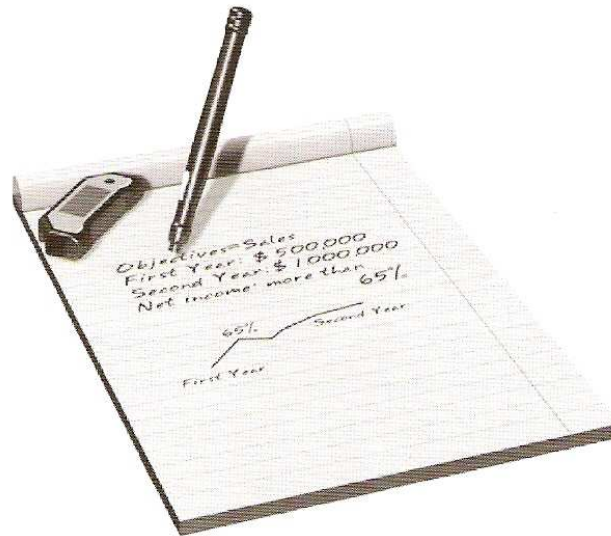 Objectives=Sales
First Year: $ 500,000
Second Year: $ 1,000,000
Net income: more than
65%
65%
Second Year
First Year